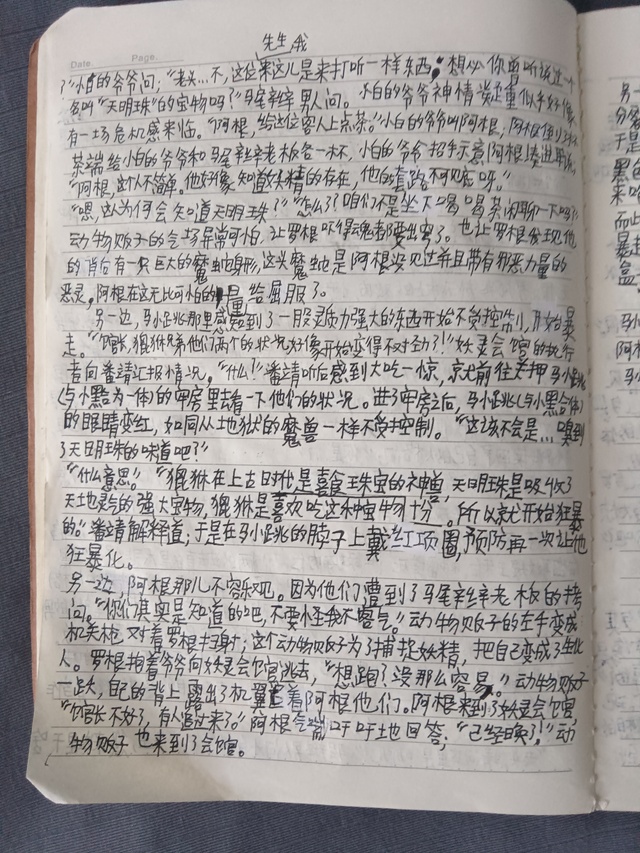 Date. Page.
先生,我
了”小白的爷爷问,“老头…不,这位来这儿是来打听一样东西,想必你曾听说过一个
名叫“天明珠”的宝物吗?”马尾辫男人问。小白的爷爷神情凝重似乎好像
有一场危机感来临。“阿根,给这位客人上点茶。”小白的爷爷叫阿根,阿根倒了
茶端给小白的爷爷和马尾辫老板各一杯,小白的爷爷招手示意阿根凑进耳
“阿根,这人不简单。他好像知道妖精的存在,他的套路不见底呀。”
“嗯,这人为何会知道天明珠?”“怎么了?咱们不是坐下喝喝茶闲聊一下吗?”
动物贩子的气场异常可怕,让罗根吓得魂都要出窍了。也让罗根发现他
的背后有一只巨大的魔蛇身形,这头魔蛇是阿根没见过并且带有邪恶力量的
恶灵。阿根在这无比可怕的力量给屈服了。
另一边,马小跳那里感觉到了一股灵质力强大的东西开始不受控制,开始暴
走。“馆长,貔貅弟他们两个的状况好像开始变得不对劲了!”妖灵会馆的执行
者向潘靖汇报情况。“什么!”潘靖听后感到大吃一惊,就前往关押马小跳
(与小黑合为一体)的牢房里去看一下他们的状况。进了牢房之后,马小跳(与小黑合体)
的眼睛变红,如同从地狱的魔兽一样不受控制。“这该不会是…嗅到
了天明珠的味道吧?”
“什么意思。”“貔貅在上古时代是喜食珠宝的神兽,天明珠是吸收了
天地灵气的强大宝物,貔貅是喜欢吃这种宝物十分。所以就开始狂暴
的。”潘靖解释道;于是在马小跳的脖子上戴红项圈,预防再一次让他
狂暴化。
另一边,阿根那儿不容乐观。因为他们遭到了马尾辫老板的拷
问。“你们其实是知道的吧,不要怪我不客气。”动物贩子的左手变成
机关枪,对着罗根扫射;这个动物贩子为了捕捉妖精,把自己变成了生化
人。罗根抱着爷爷向妖灵会馆逃去,“想跑?没那么容易。”动物贩子
一跃,自己的背上露出机翼追着阿根他们。阿根来到了妖灵会馆,
“馆长不好了,有人追过来了。”阿根气喘吁吁地回答;“已经晚了!”动
物贩子也来到了会馆。